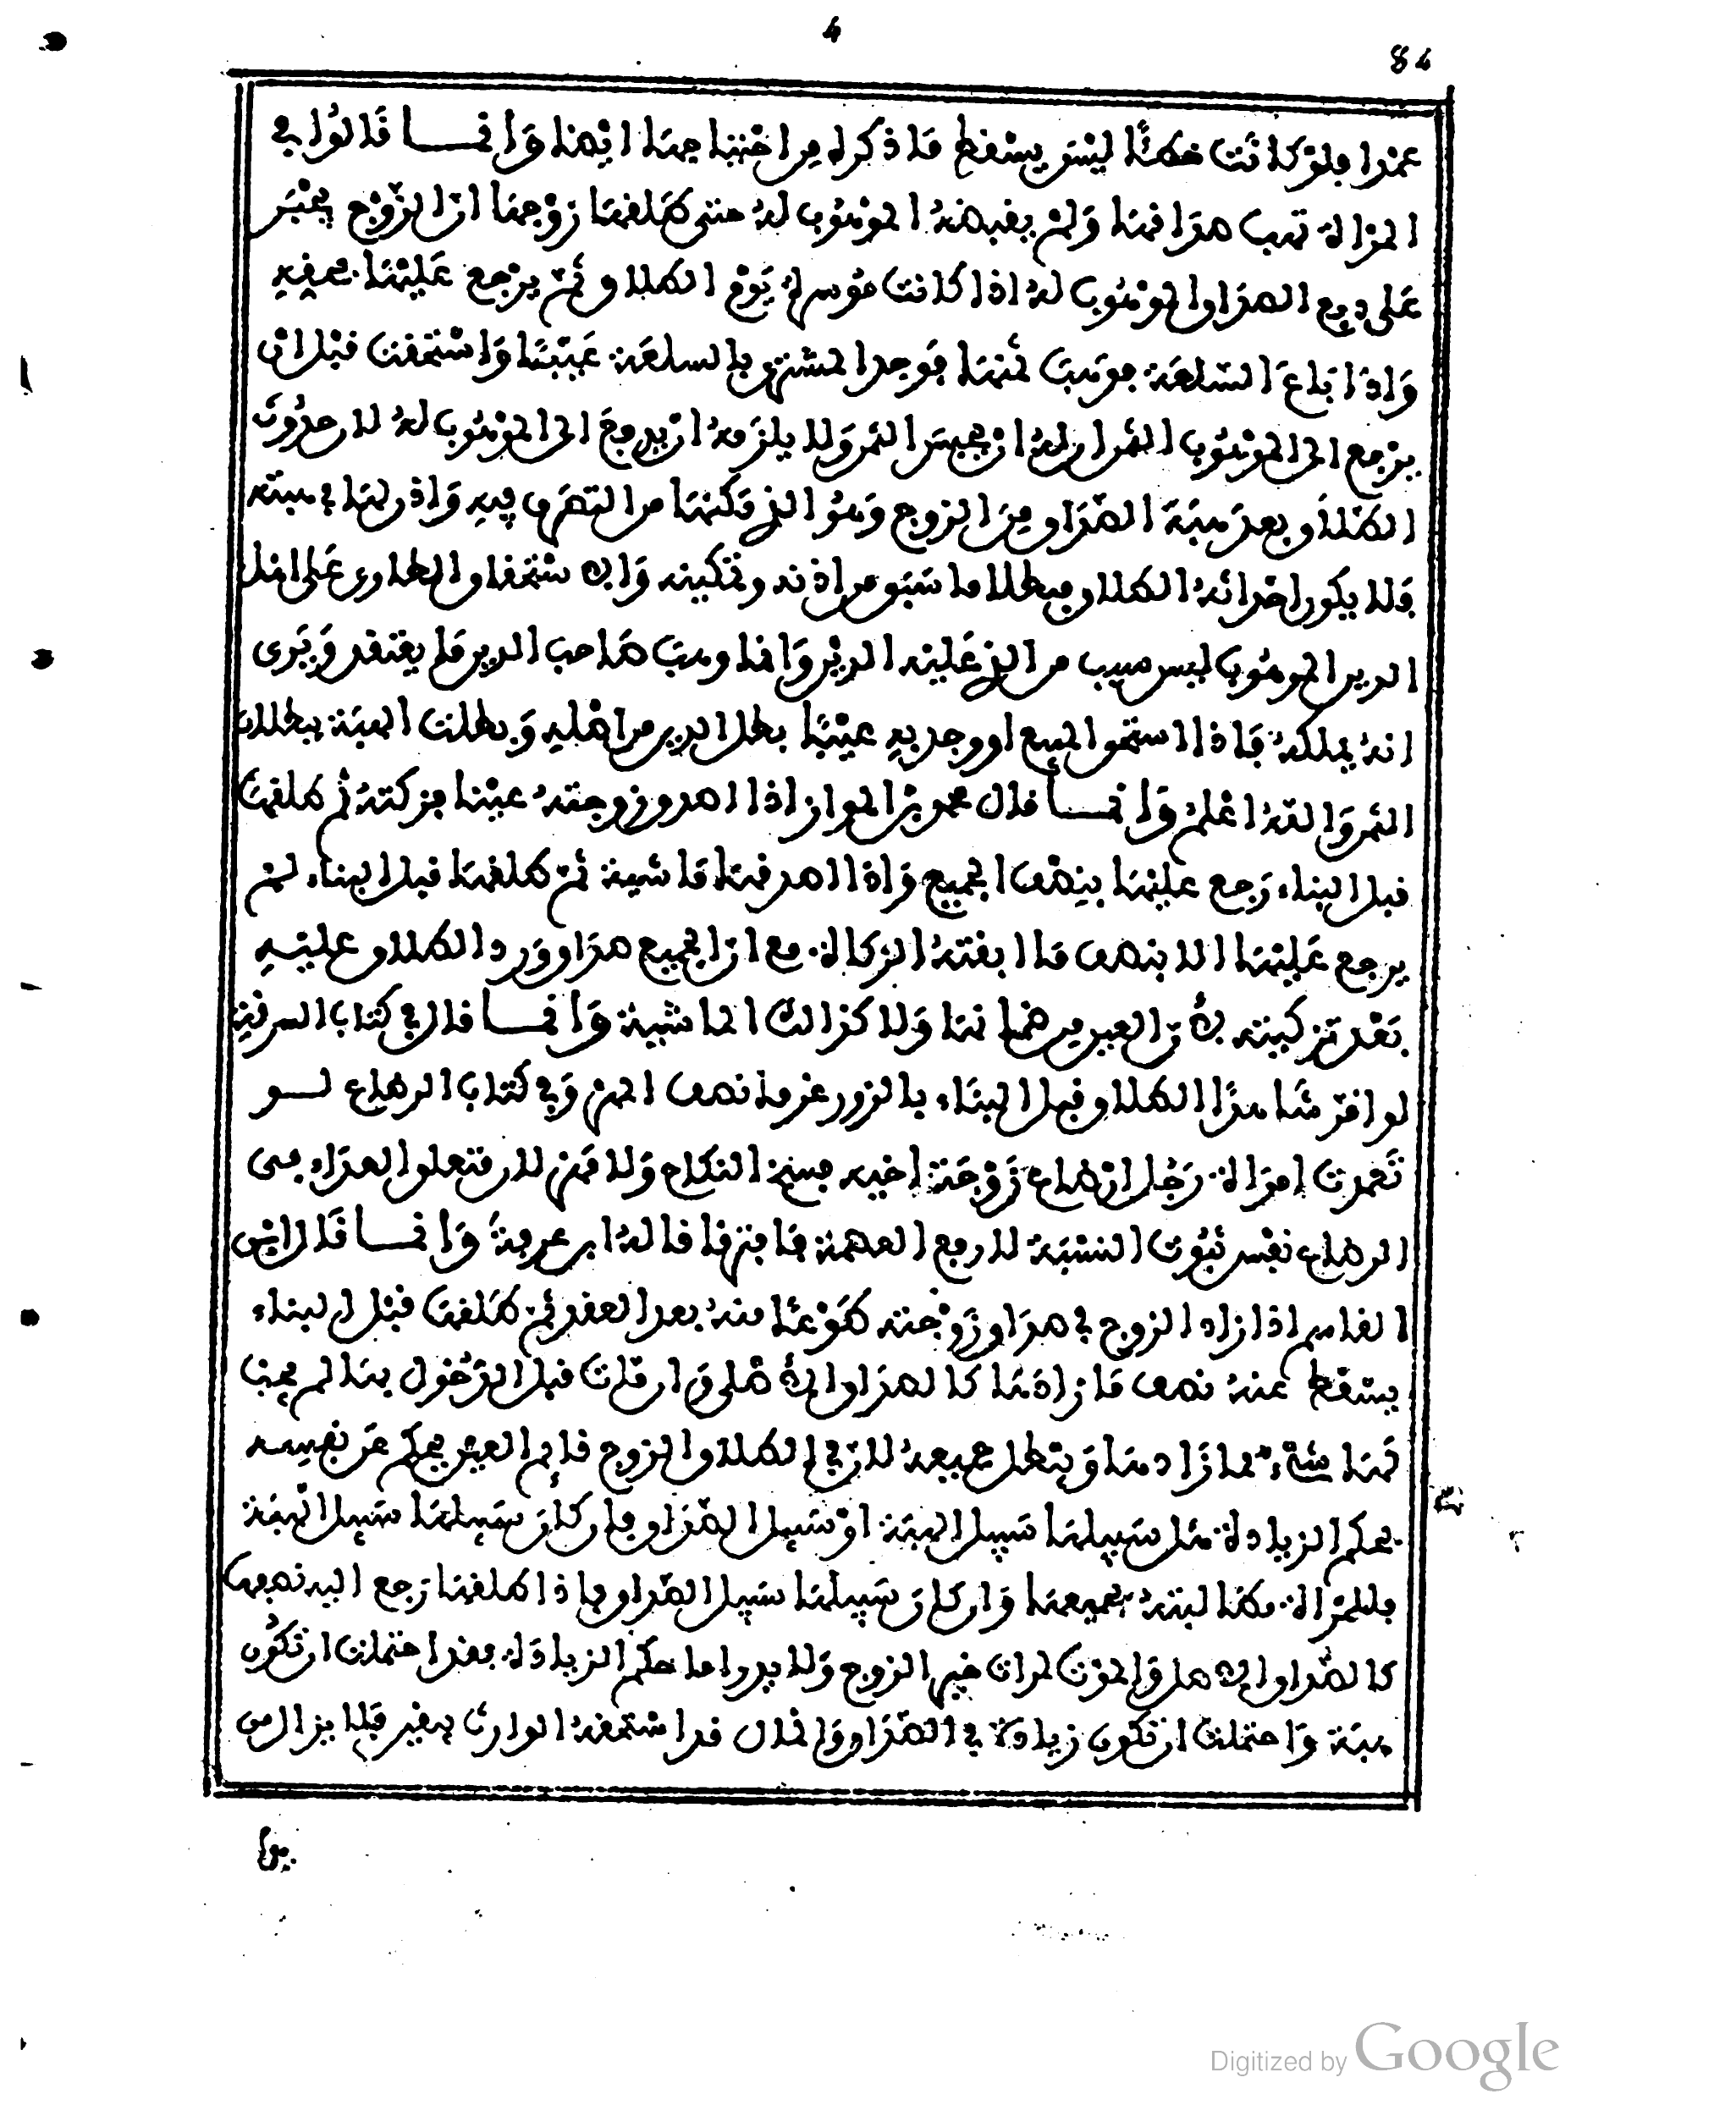 4
84
عمدا فلو كانت خطأ ليس يسقط ما ذكره من اختها جمعا ايضا وَإنمــا قَالوُا في
المرأة تهب صداقها وَلمْ يقبضهُ الموهُوب لهُ حتى طلقها زوْجها انّ الزّوْج يجْبَر
عَلى دفع الصداق الموْهُوب لهُ اذا كانت مُوسرة يَوْم الطلاق ثمّ يرْجع عَليْها بنصفه
وَاذا بَاعَ السّلعَة فوَهبَ ثمنها فوَجد المشتري بالسلعَة عَيْبًا وَاسْتحقت قبْل انْ
يرْجع الى الموْهُوب الثمن ان لهُ ان يحبسَ الثمن وَلا يلزمهُ انْ يدفعَ الى الموْهُوب لهُ لان حدُوث
الطّلاق بعد هبَة الصّدَاق مِن الزوج وَهُوَ الذي مَكنها من التصَرف فيهِ وَاذن لها في هبته
فلا يكون احْداثهُ الطلاق مبطلا ما سَبَق من اذنه وتمكينه وَالاستحقاق الطاري عَلى اهل
الدين الموهُوب ليس هبب من الذي عَليْه الديْن وَانما وهبَ صَاحب الدين ما يعتقد وَيَرى
انهُ يملكهُ فاذا استحق المبيع او وجد بهِ عيْبًا بطل الدين من اصْلِهِ وَبطلت الهبَة ببطلان
الثمن وَاللهُ اعْلمُ وَانمــا قال محمد بن المواز اذا اصدق زوجتهُ عيْنا فزكتهُ ثم طلقها
قبل البناء رَجع عليْها بنِصْف الجميع وَاذا اصدقها مَاشية ثمّ طلقها قبل البناء لمْ
يرجع عَليْها الا بنصف مَا ابقتهُ الزكاة مع انّ الجميع صدَاق وَرد الطلاق عليْهِ
بَعْد تزكيته لأنّ العين من ضمانها وَلا كذالك الماشية وَانمــا قال في كتاب السرقة
لو اقرّ شاهدَا الطلاق قبل البنَاء بالزور غرما نصف المهْر وَفي كتاب الرضاع لــو
تَعمدت امرَأة رَجُل ارْضاع زَوْجَة اخيه فسِخ النكاح وَلا مَهْر لان فعلوا لعدَاء من
الرضاع نفْس ثبُوت النسْبَة لا رفع العصمة فافترقا قالهُ ابن عرفة وَإنمــا قَال ابْن
القاسم اذا زاد الزوج في صدَاق زَوْجته طَوْعًا منهُ بعد العقد ثمّ طَلقها قبْل البناء
يسْقط عَنهُ نصف مَا زادَهَا كالصدَاق الأصْلي وَان مَات قبل الدّخُول بها لم يجب
لهَا شيْء مما زَادهَا وَيبْطل جميعهُ لان في الطلاق الزوج قائم العين يحكم عَن نفسه
بحكم الزيادة هل سَبيلها سَبيل الهبَة اوْ سَبيل الصّدَاق فان كان سَبيلها سَبيل الهبَة
فللمرْأة مطَالبتهُ بجميعها وَان كان سَبيلها سَبيل الصّداق فاذا طلقها رَجع اليه نصفها
كالصّداق الأصل وَالموْت لم ات خير الزوج وَلا يدرى ما حكم الزيادة فقد احتملت ان تكُون
هبَة وَاحتملت ان تكُون زيادة في الصّدَاق وَالمال قد اسْتحقهُ الوارث بيقين فلا يزال من
يدي
Digitized by Google